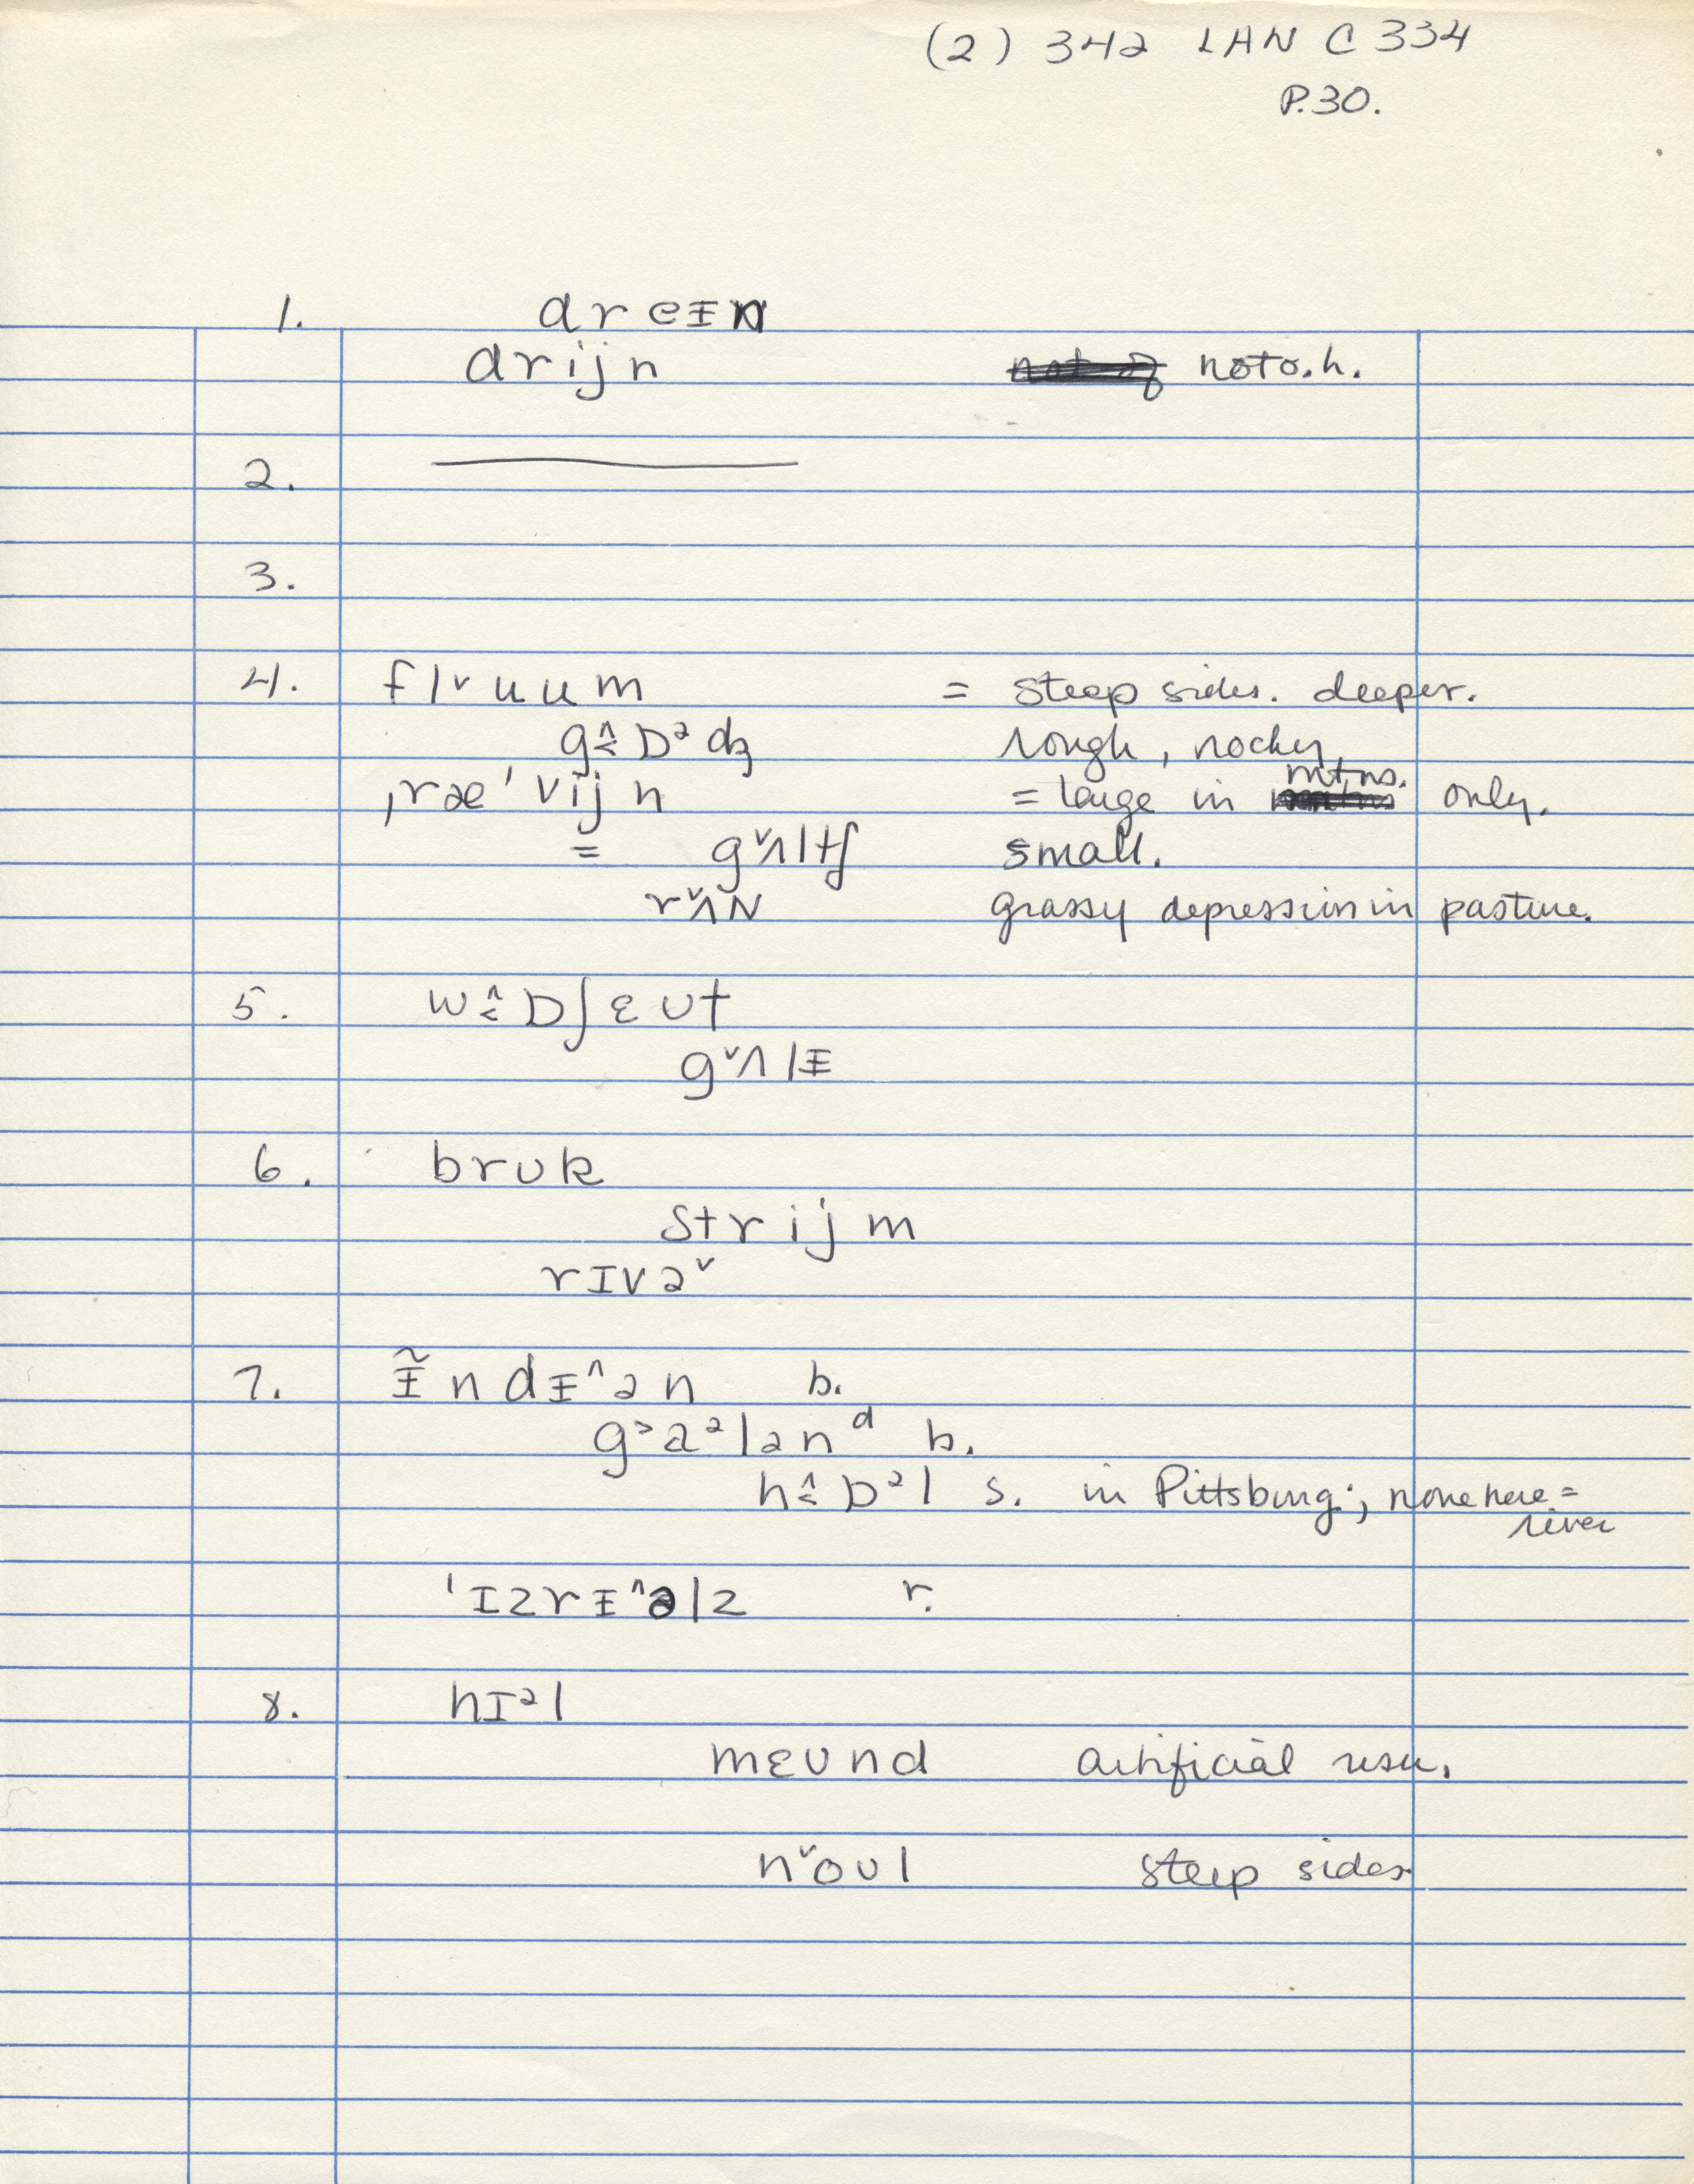 (2) 342 LAN C 334
P.30.
1. dreᵻn
drijn not o.h.
2.
3.
4. flᵛuum = steep sides. deeper.
g<^ɒᵊdʒ rough, rocky
ˌræˈvijn = large in mtns. only.
= gᵛʌltʃ small.
rᵛʌN grassy depression in pasture.
5. w<^ɒʃɛʊt
gᵛʌlᵻ
6. brʊk
strijm
rɪvəᵛ
7. ᵻ̃ndᵻ^ən b.
g˃aᵊlənᵈ b.
h<^ɒᵊl s. in Pittsburg; none here =
river
ˈɪzrᵻ^əlz r.
8. hɪᵊl
mɛʊnd artificial usu.
nᵛoʊl steep sides